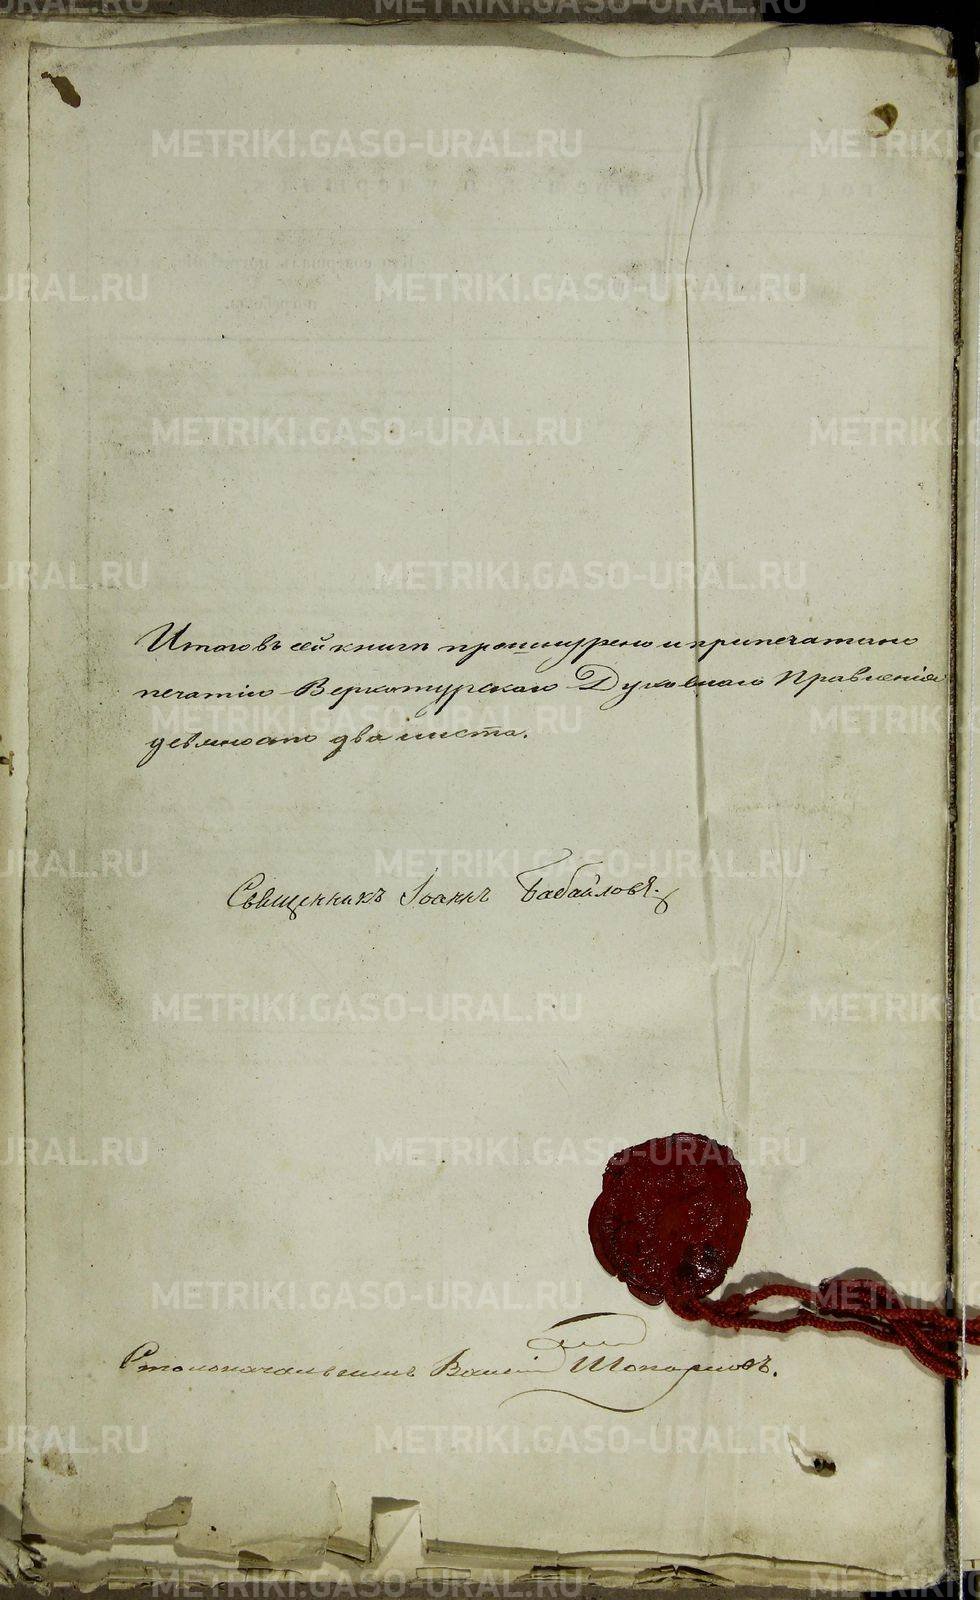 Итого въ сей книгѣ прошнурено и припечатано
печатію Верхотурскаго Духовнаго Правленія
девяносто два листа.
Священникъ Іоаннъ Бабайловъ
Столоначальникъ Василій Топорковъ.
METRIKI.GASO-URAL.RU